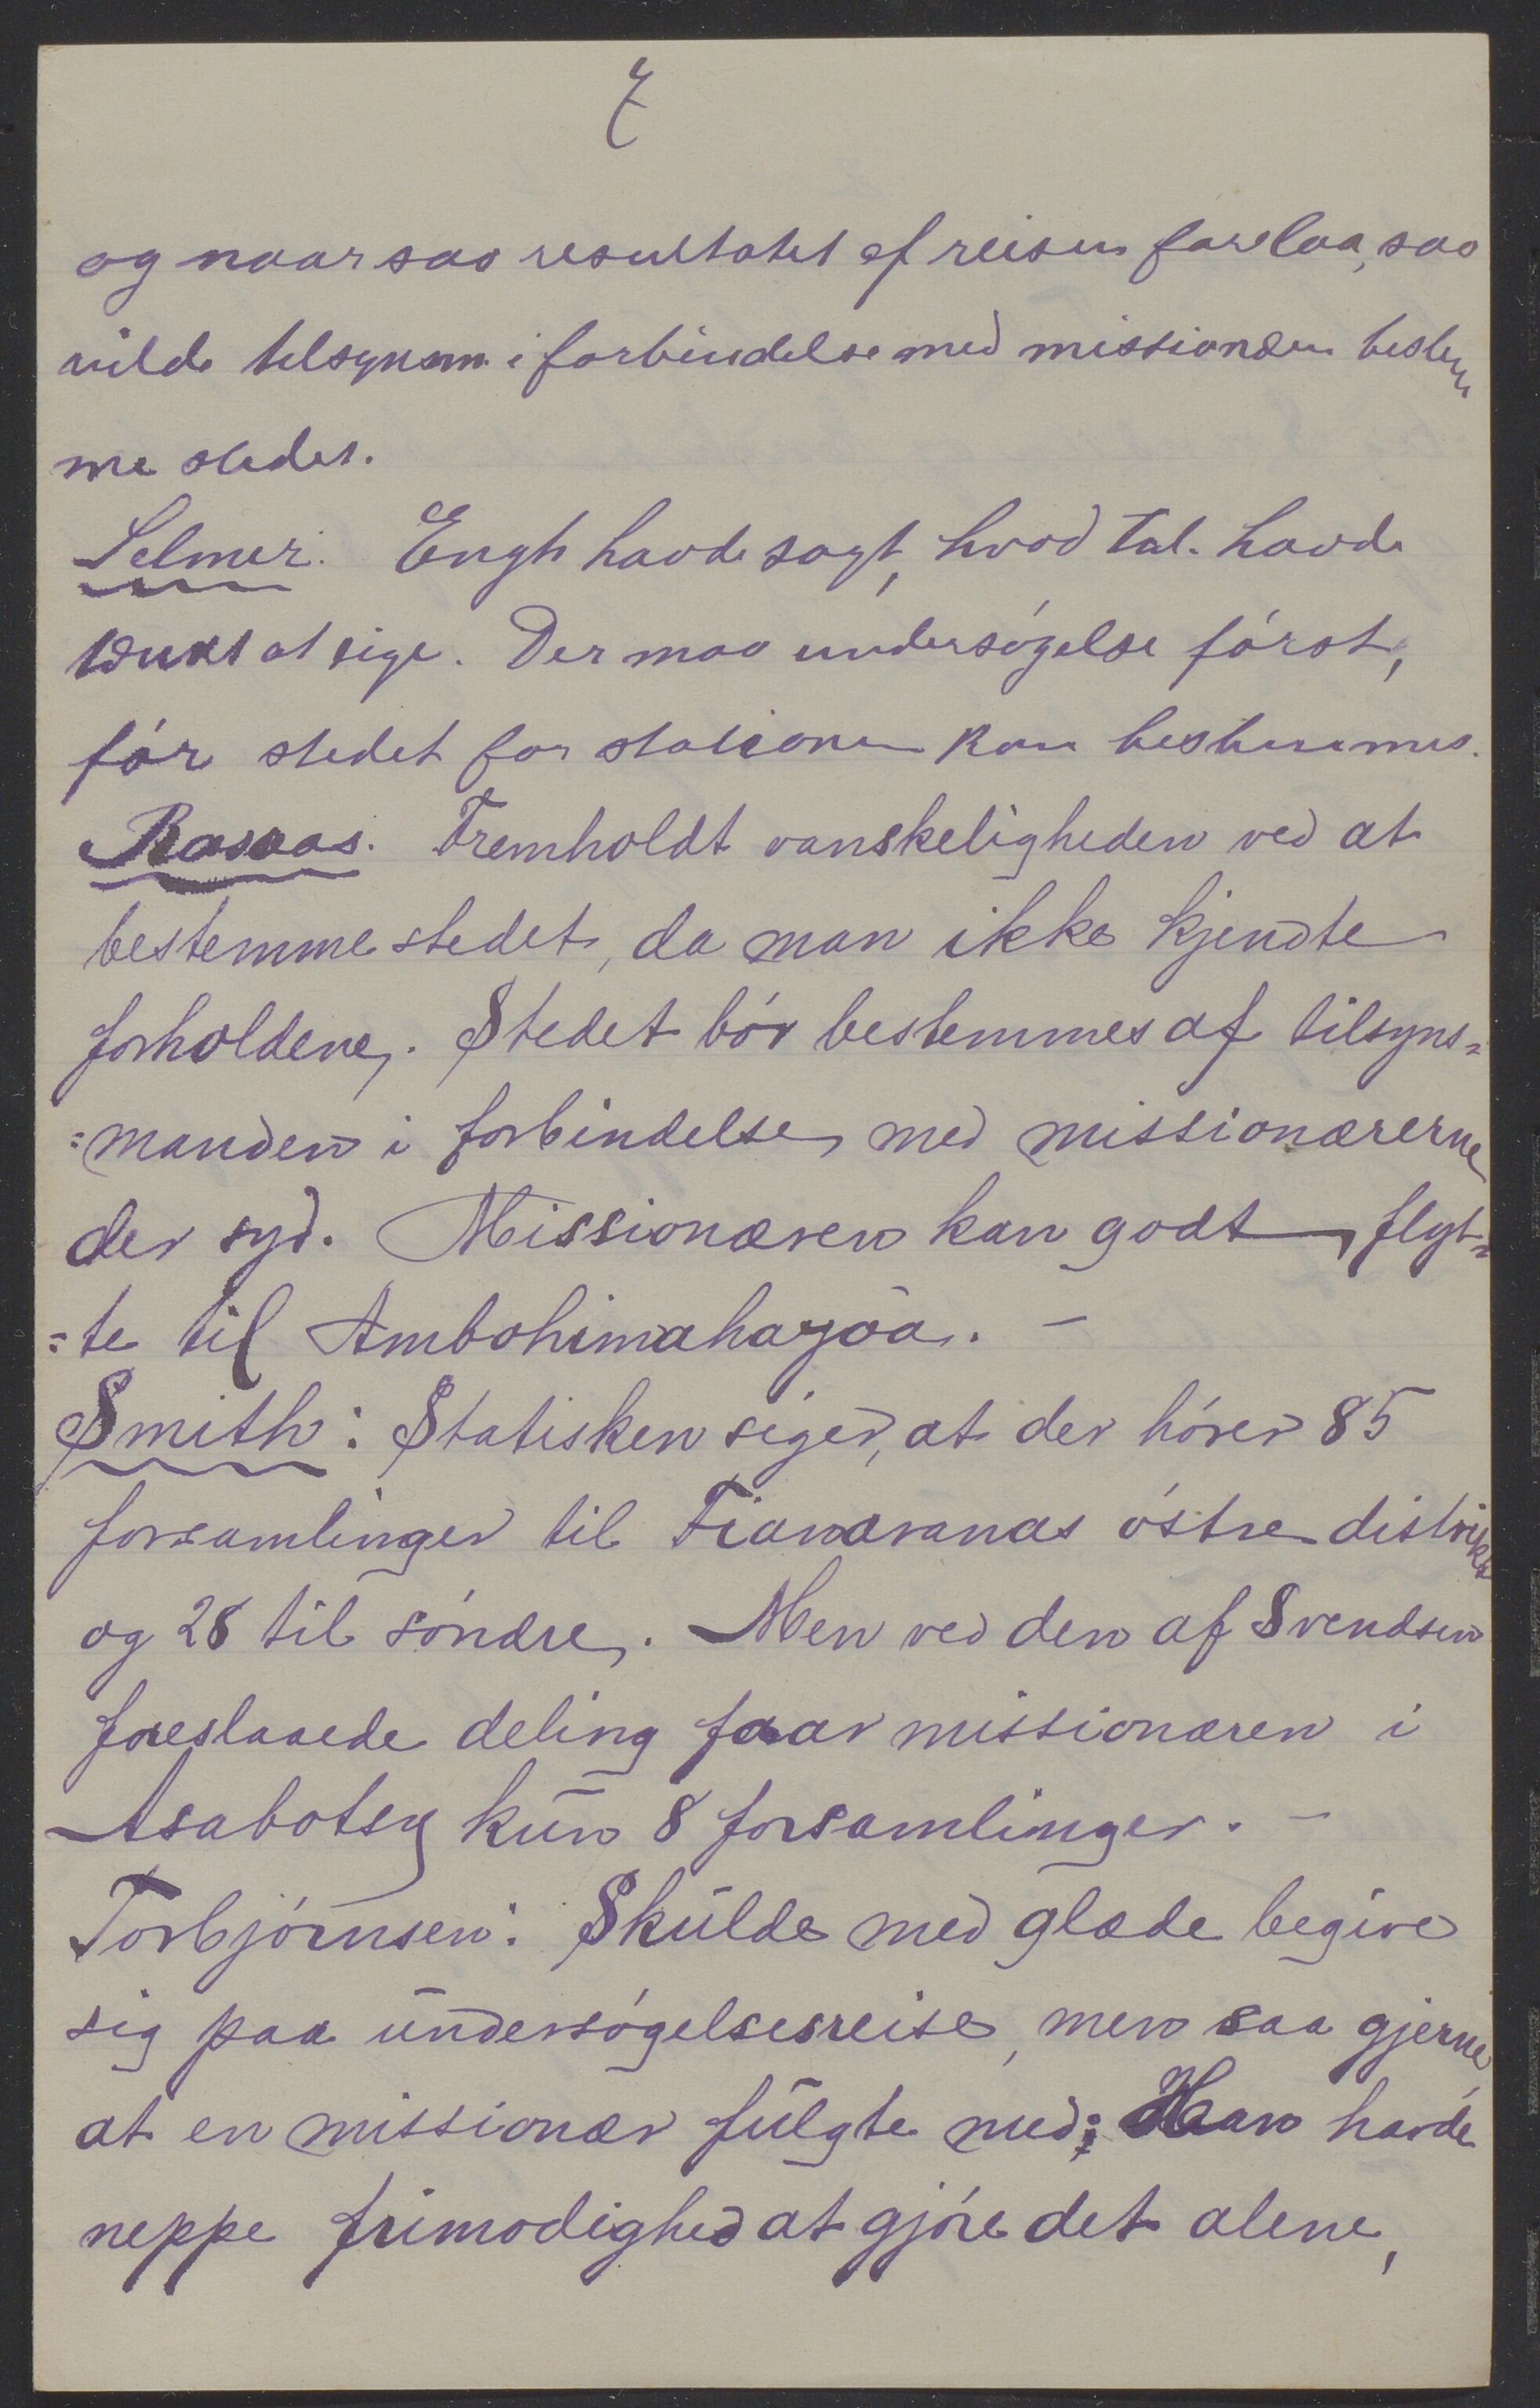 7
og naar saa resultatet af reisen forelaa, saa
vilde tilsynsm. i forbindelse med missionæren bestem
me stedet.
Selmer. Engh havde sagt, hvad Tal. havde
tænkt at sige. Der maa undersøgelse først,
før stedet for stationen kan bestemmes.
Rosaas. Fremholdt vanskeligheden ved at
bestemme stedet, da man ikke kjendte
forholdene. Stedet bør bestemmes af tilsyns=
=manden i forbindelse med missionærerne
der syd. Missionæren kan godt flyt=
=te til Ambohimahazoa. –
Smith: Statisken siger, at der hører 85
forsamlinger til Fianaranas østre distrikt
og 28 til søndre. Men ved den af Svendsen
foreslaaede deling faar missionæren i
Asabotsy kun 8 forsamlinger. –
Torbjørnsen: Skulde med glæde begive
sig paa undersøgelsesreise, men saa gjerne
at en missionær fulgte med; Han havde
neppe frimodighed at gjøre det alene,